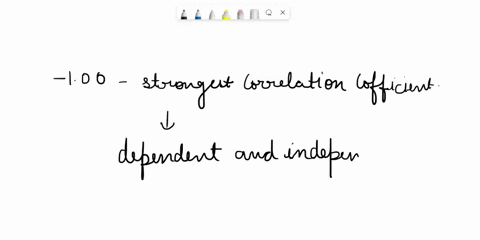 -1.00 - strongest correlation cofficient.
↓
dependent and indepen